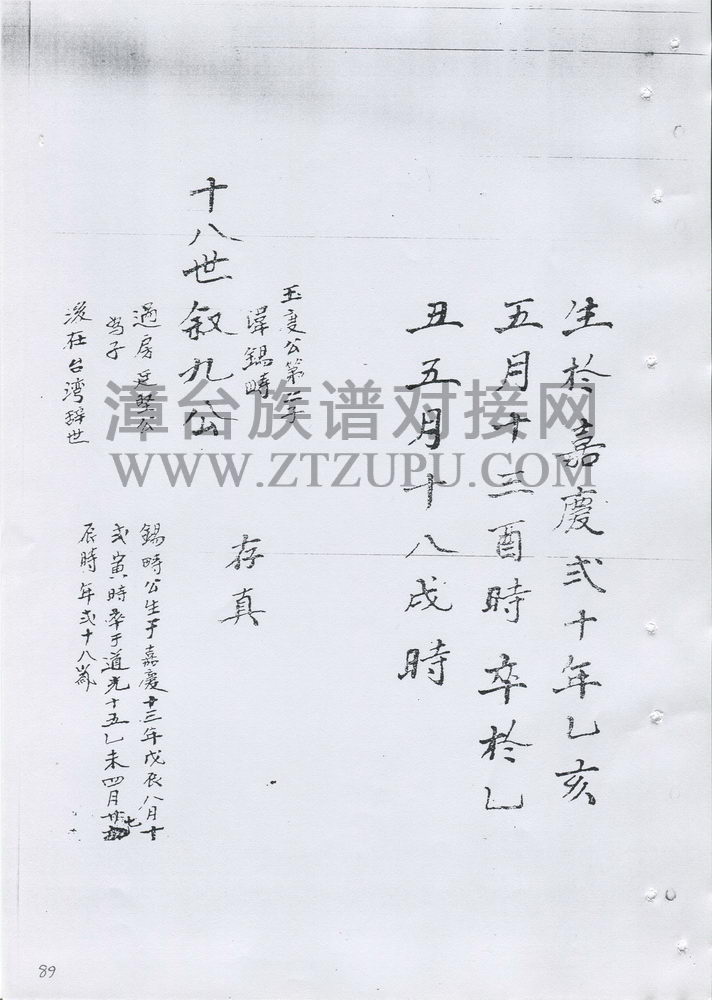 生於嘉慶弍十年乙亥
五月十三酉時卒於乙
丑五月十八戌時
玉度公第二子
諱錫疇
存真
十八世叙九公
過房廷堅公
為子
後在台湾辞世
錫疇公生于嘉慶十三年戊辰八月十
弍寅時卒于道光十五乙未四月廿七
辰時年弍十八歲
漳台族谱对接网
WWW.ZTZUPU.COM
89